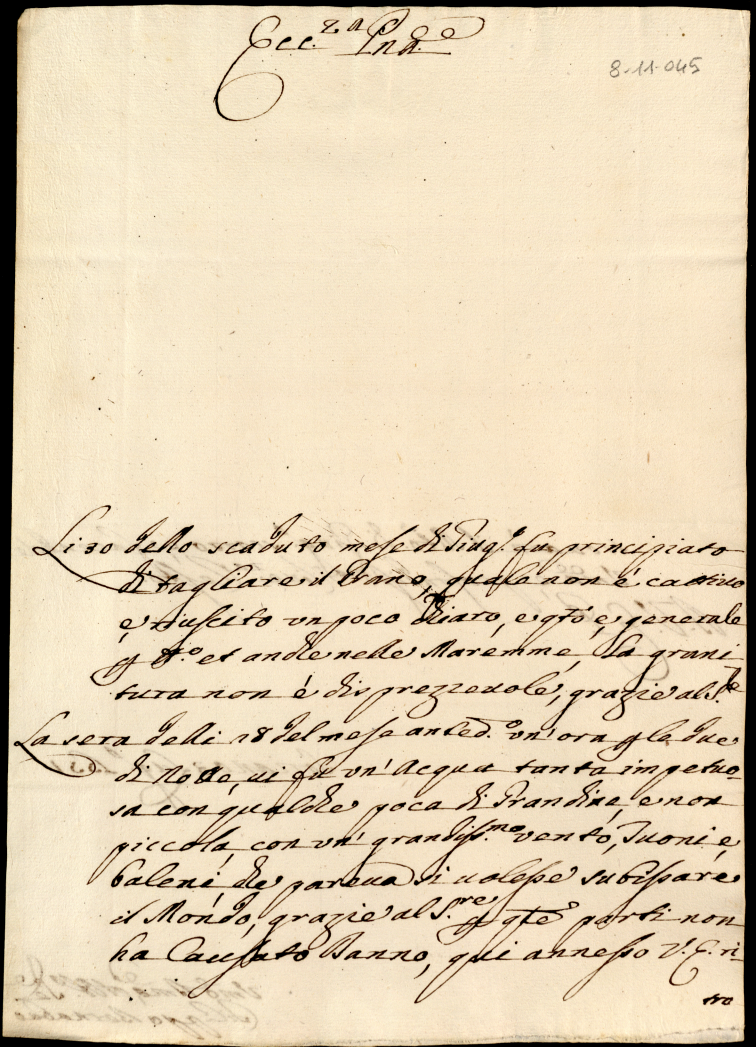 Ecc.za Pnã.e
8-11-045
Li 30 dello scaduto mese di Giug.o fu principiato
di tagliare il Grano, quale non è cattivo
e, riuscito vn poco chiaro, e q.to e, generale
p tt.o et anche nelle Maremme, la grani-
tura non è disprezzevole, grazie al S.re
La sera delli 28 del mese anted.o vn'ora p le due
di Notte, ui fu vn'Acqua tanta impetuo-
sa con qualche poca di Grandine, e non
piccola, con vn' grandiss.mo vento, Tuoni e,
baleni che pareua si uolesse subissare
il Mondo, grazie al S.re p q.te parti non
ha Causato Danno, qui annesso V.E. ri-
tro